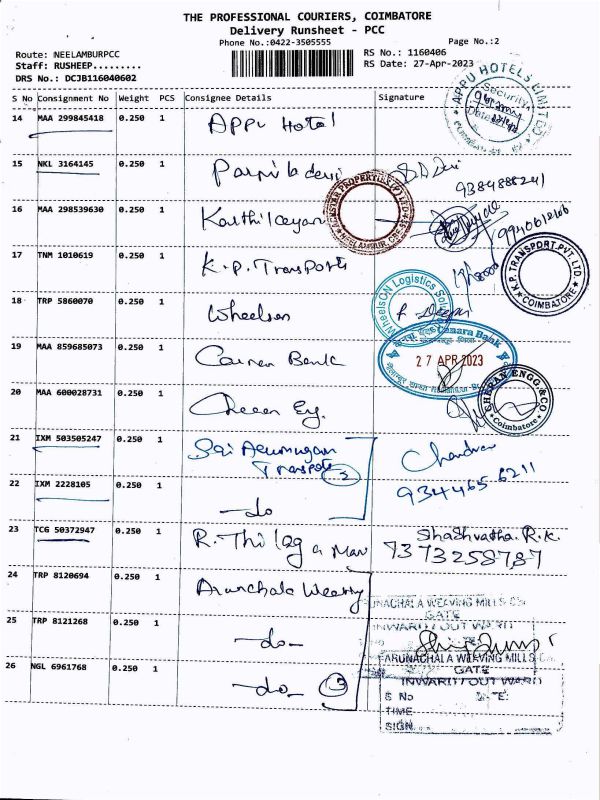 THE PROFESSIONAL COURIERS, COIMBATORE
Delivery Runsheet - PCC
Phone No.:0422-3505555
Page No.:2
Route: NEELAMBURPCC
RS No.: 1160406
Staff: RUSHEEP.........
RS Date: 27-Apr-2023
DRS No.: DCJB116040602
S No Consignment No Weight PCS Consignee Details Signature
14 MAA 299845418 0.250 1 Appu Hotel
APPU HOTELS LIMITED
Security
15 NKL 3164145 0.250 1
9384888241
16 MAA 298539630 0.250 1 Karthikeyan
17 TNM 1010619 0.250 1 K.P. Transports
K.P. TRANSPORT PVT. LTD.
COIMBATORE
18 TRP 5860070 0.250 1 Wheelson
WheelsON Logistics
19 MAA 859685073 0.250 1 Canara Bank
Canara Bank
27 APR 2023
20 MAA 600028731 0.250 1
ENGG. & CO
Coimbatore
21 IXM 503505247 0.250 1 Sai Arumugam Transpots
2
Chandran
22 IXM 2228105 0.250 1 -do-
9344656211
23 TCG 50372947 0.250 1 R. Thilagaman
Shashvatha. R.K.
7373258787
24 TRP 8120694 0.250 1 Arunchala Weaving
ARUNACHALA WEAVING MILLS
GATE
INWARD / OUT WARD
25 TRP 8121268 0.250 1 -do-
ARUNACHALA WEAVING MILLS
GATE
26 NGL 6961768 0.250 1 -do- 3
INWARD / OUT WARD
S No DATE:
TIME
SIGN